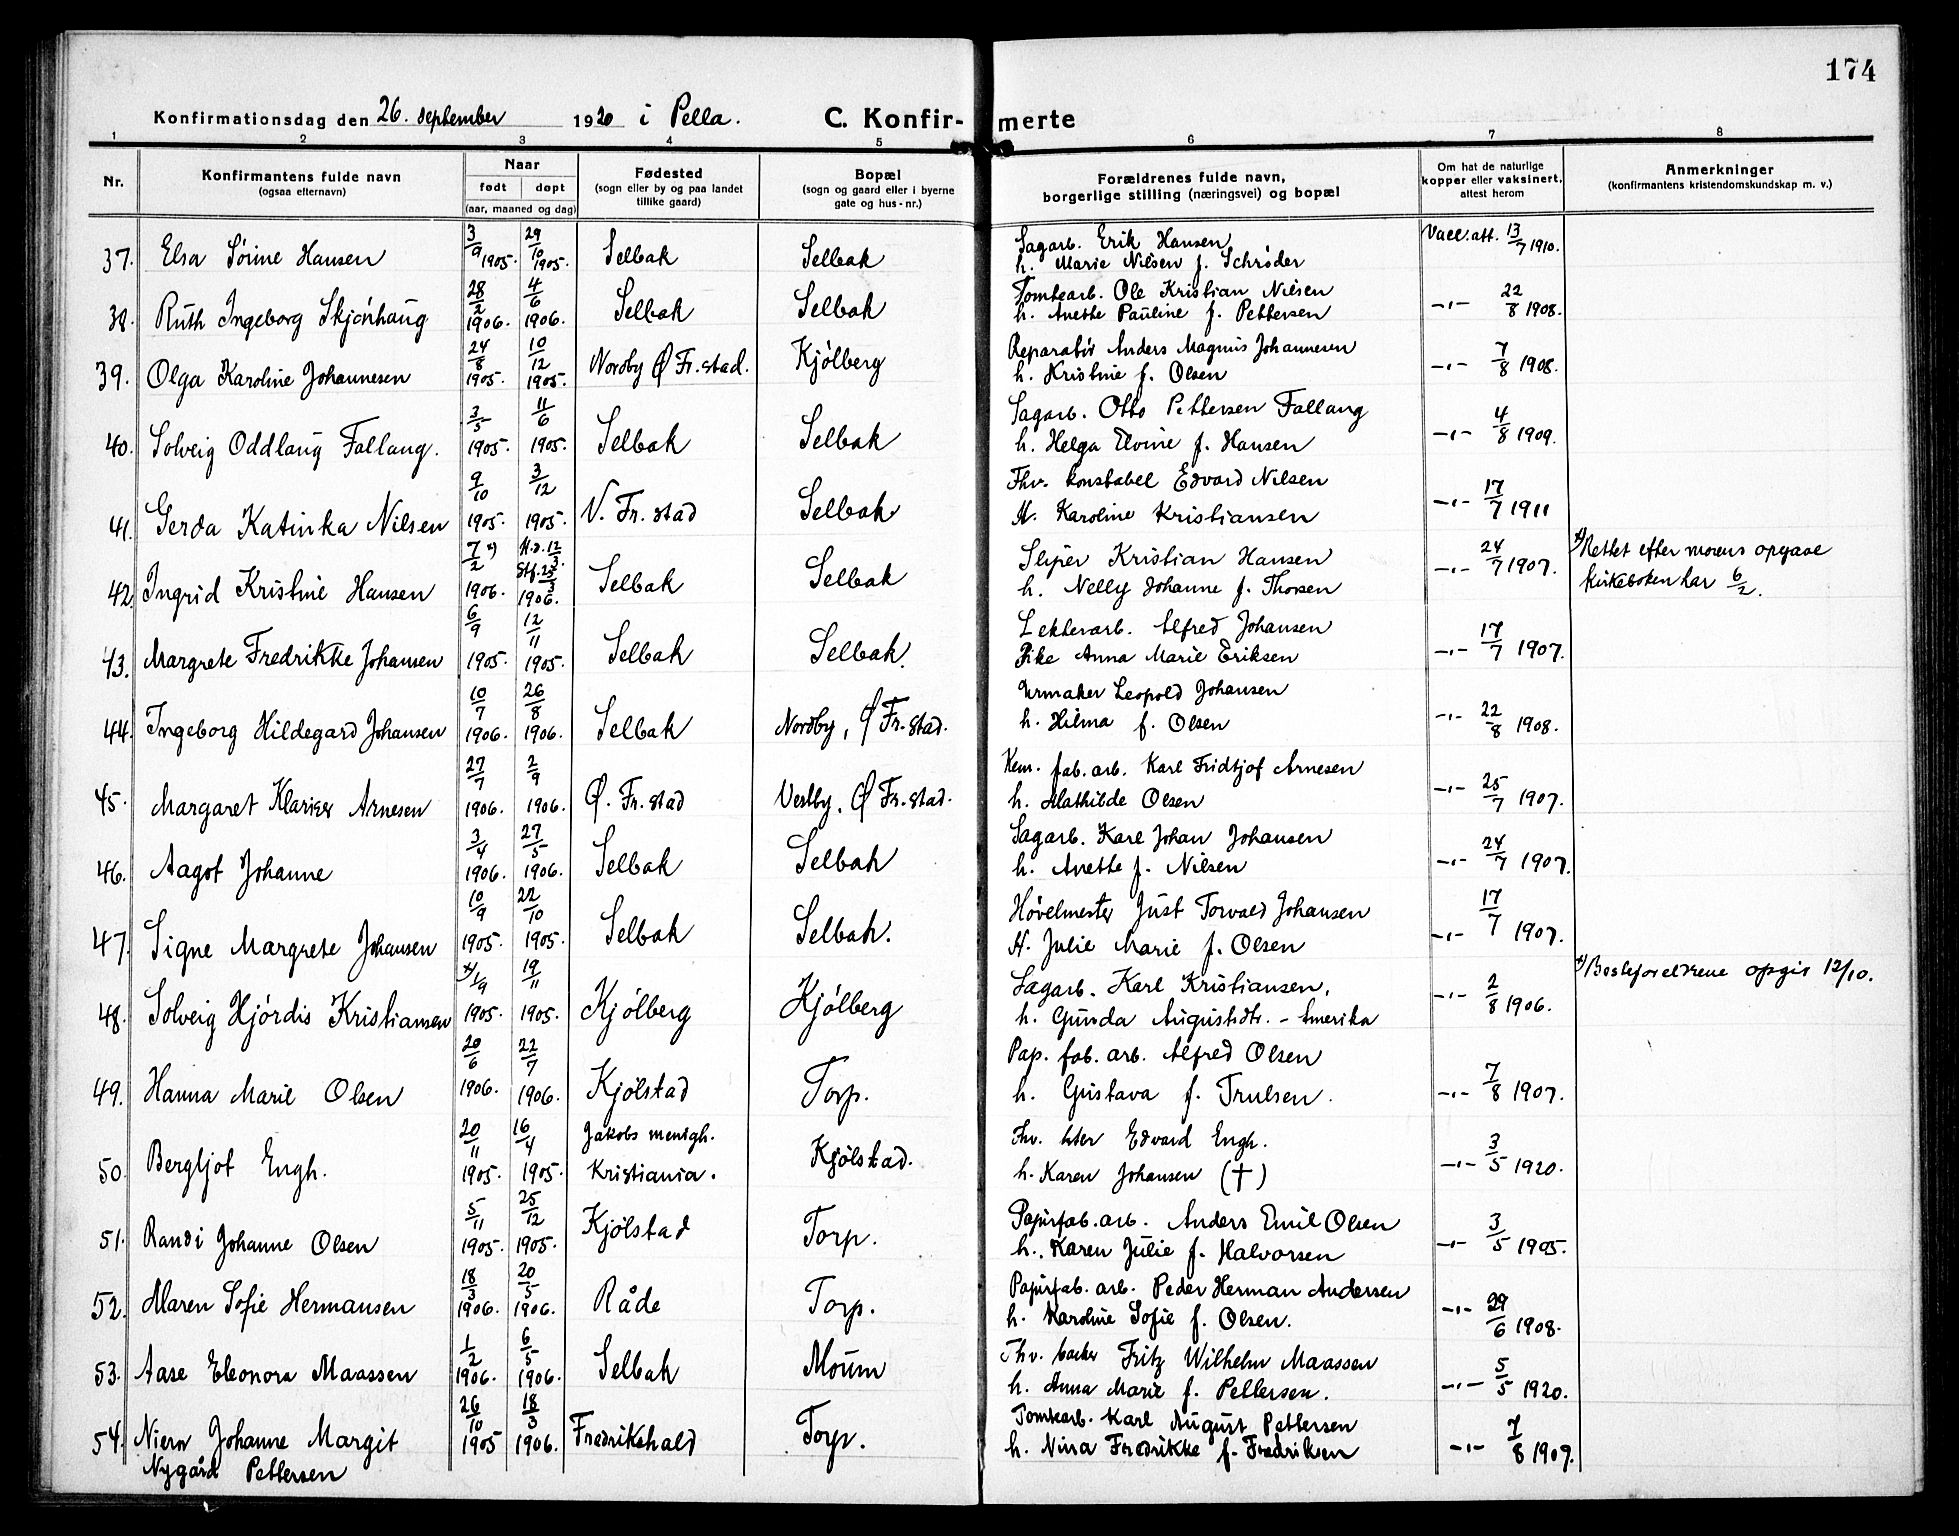 174
Konfirmationsdag den 26. september 1920 i Pella. C. Konfirmerte
1 2 3 4 5 6 7 8
Nr. Konfirmantens fulde navn (ogsaa efternavn) Naar født døpt (aar, maaned og dag) Fødested (sogn eller by og paa landet tillike gaard) Bopæl (sogn og gaard eller i byerne gate og hus-nr.) Forældrenes fulde navn, borgerlige stilling (næringsvei) og bopæl Om hat de naturlige kopper eller vaksinert, attest herom Anmerkninger (konfirmantens kristendomskundskap m. v.)
37. Elsa Sörine Hansen 3/9 1905. 29/10 1905. Selbak Selbak Sagarb. Erik Hansen Vacc. att. 13/7 1910.
h. Marie Nilsen f. Schrøder
38. Ruth Ingeborg Skjönhaug 28/2 1906. 4/6 1906. Selbak Selbak Tomtearb. Ole Kristian Nilsen -"- 22/8 1908.
h. Anette Pauline f. Pettersen
39. Olga Karoline Johannesen 24/8 1905. 10/12 1905. Nordby Ø Fr.stad. Kjölberg Reparatör Anders Magnus Johannesen -"- 7/8 1908.
h. Kristine f. Olsen
40. Solveig Oddlaug Fallang. 3/5 1905. 11/6 1905. Selbak Selbak Sagarb. Otto Pettersen Fallang -"- 4/8 1909.
h. Helga Elvine f. Hansen
41. Gerda Katinka Nilsen 9/10 1905. 3/12 1905. V. Fr. stad Selbak Fhv. konstabel Edvard Nilsen -"- 17/7 1911
H. Karoline Kristiansen
42. Ingrid Kristine Hansen 7/2 x) 1906. H.d. 12/3. Stf. 25/3 1906. Selbak Selbak Sliper Kristian Hansen -"- 24/7 1907. x) Rettet efter morens opgave
h. Nelly Johanne f. Thorsen kirkeboken har 6/2.
43. Margrete Fredrikke Johansen 6/9 1905. 12/11 1905. Selbak Selbak. Lekterarb. Alfred Johansen -"- 17/7 1907.
Pike Anna Marie Eriksen
44. Ingeborg Hildegard Johansen 10/7 1906. 26/8 1906. Selbak Nordby, Ø Fr.stad. Urmaker Leopold Johansen -"- 22/8 1908.
h. Hilma f. Olsen
45. Margaret Arnesen 27/7 1906. 2/9 1906. Ø. Fr. stad Vestby, Ø Fr.stad. Kem. fab. arb. Karl Fridtjof Arnesen -"- 25/7 1907.
h. Mathilde Olsen
46. Aagot Johanne 3/4 1906. 27/5 1906. Selbak Selbak Sagarb. Karl Johan Johansen -"- 24/7 1907.
h. Anette f. Nilsen
47. Signe Margrete Johansen 10/9 1905. 22/10 1905. Selbak Selbak. Hövelmester Just Torvald Johansen -"- 17/7 1907.
H. Julie Marie f. Olsen
48. Solveig Hjördis Kristiansen x) 1/9 1905. 19/11 1905. Kjölberg Kjölberg Sagarb. Karl Kristiansen, -"- 2/8 1906. x) Besteforeldrene opgir 12/10.
h. Gunda Augustsdtr. - Amerika
49. Hanna Marie Olsen 20/6 1906. 22/7 1906. Kjölstad Torp. Pap. fab. arb. Alfred Olsen -"- 7/8 1907.
h. Gustava f. Trulsen.
50. Bergljot Engh. 20/11 1905. 16/4 1905. Jakobs menigh. Kristiania. Kjölstad. Fhv. Edvard Engh. -"- 3/5 1920.
h. Karen Johansen (†)
51. Randi Johanne Olsen 5/11 1905. 25/12 1905. Kjölstad Torp. Papirfab. arb. Anders Emil Olsen -"- 3/5 1905.
h. Karen Julie f. Halvorsen
52. Maren Sofie Hermansen 18/3 1906. 20/5 1906. Råde Torp. Papirfab. arb. Peder Herman Andersen -"- 29/6 1908.
h. Karoline Sofie f. Olsen.
53. Aase Eleonora Maassen 1/2 1906. 6/5 1906. Selbak Moum Fhv. baker Fritz Wilhelm Maassen -"- 5/5 1920.
h. Anna Marie f. Pettersen.
54. Johanne Margit 26/10 1905 18/3 1906. Fredrikshald Torp. Tomtearb. Karl August Pettersen -"- 7/8 1909.
Nygård Pettersen h. Nina Fredrikke f. Fredriksen